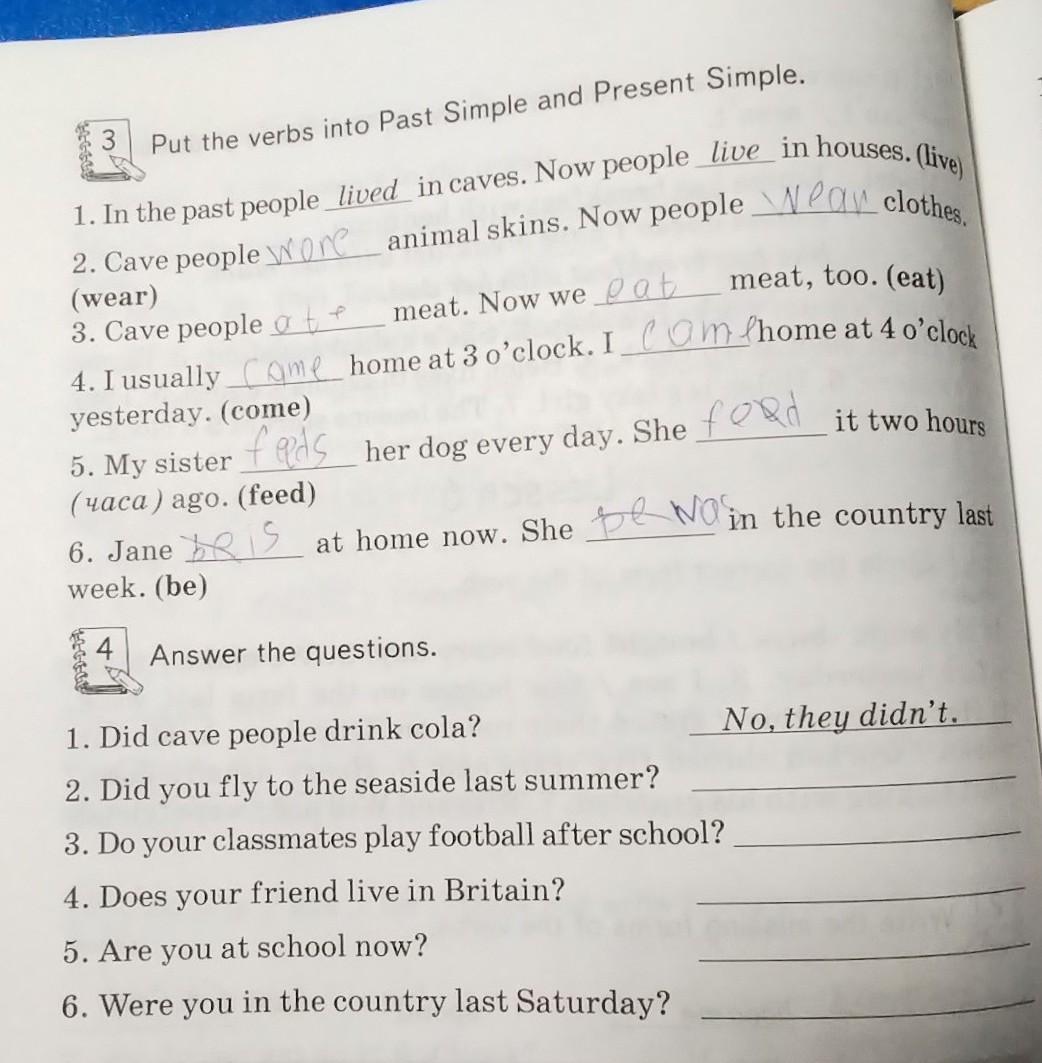 3 Put the verbs into Past Simple and Present Simple.
1. In the past people lived in caves. Now people live in houses. (live)
2. Cave people wore animal skins. Now people wear clothes.
(wear)
3. Cave people ate meat. Now we eat meat, too. (eat)
4. I usually came home at 3 o'clock. I came home at 4 o'clock
yesterday. (come)
5. My sister feeds her dog every day. She feed it two hours
(часа) ago. (feed)
6. Jane be is at home now. She be was in the country last
week. (be)
4 Answer the questions.
1. Did cave people drink cola? No, they didn't.
2. Did you fly to the seaside last summer?
3. Do your classmates play football after school?
4. Does your friend live in Britain?
5. Are you at school now?
6. Were you in the country last Saturday?